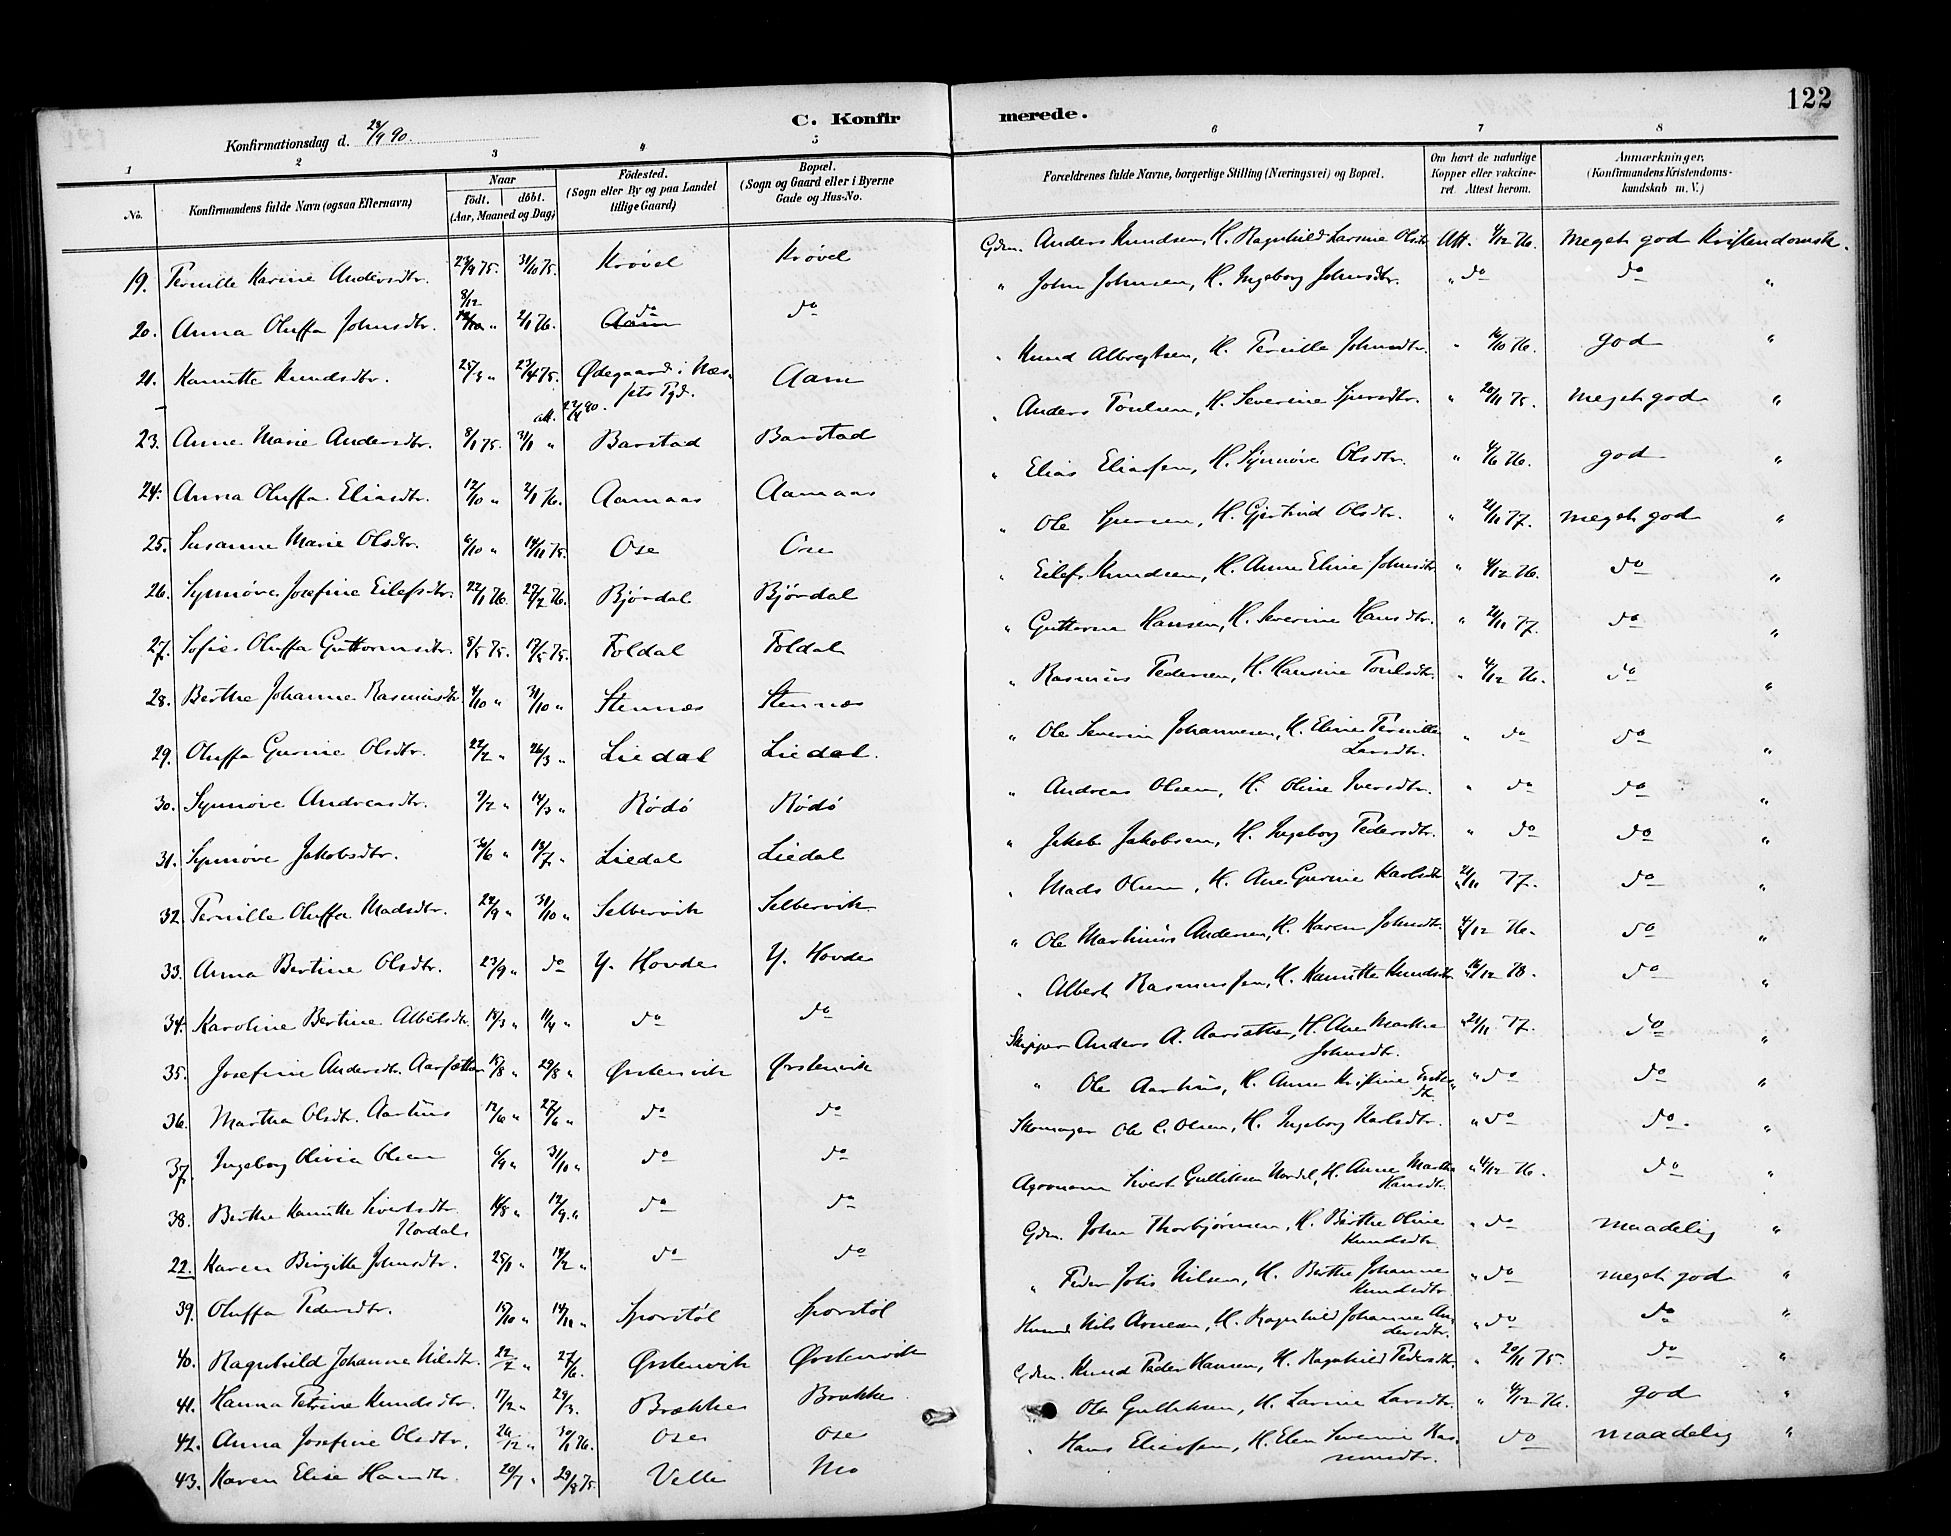 122
C. Konfirmerede.
Konfirmationsdag d. 28/9 90.
1 2 3 4 5 6 7 8
No. Konfirmandens fulde Navn (ogsaa Efternavn) Naar født. døbt. (Aar, Maaned og Dag) Fødested. (Sogn eller By og paa Landet tillige Gaard) Bopæl. (Sogn og Gaard eller i Byerne Gade og Hus-No. Forældrenes fulde Navne, borgerlige Stilling (Næringsvei) og Bopæl. Om havt de naturlige Kopper eller vaccineret. Attest herom. Anmærkninger, (Konfirmandens Kristendomskundskab m. V.)
19. Pernille Karine Andersdtr. 75. 31/10 75. Krøvel Krøvel Gdm. Anders Knudsen, H. Ragnhild Larsine Olsdtr. Att. 4/12 76. Meget god Kristendomsk.
20. Anna Oluffa Johnsdtr. 8/12 " 2/1 76. do do " John Johnsen, H. Ingeborg Johnsdtr. " do do "
21. Kanutte Knudsdtr. " 75. Ødegaard i Næssets Pgd. Aam " Knud Albregtsen, H. Pernille Johnsdtr. " 76. god "
att. 90.
23. Anne Marie Andersdtr. 8/1 75. 31/1 " Barstad Barstad " Anders Poulsen, H. Severine Sjursdtr. " 20/11 75. meget god "
24. Anna Oluffa Eliasdtr. 12/10 " 2/1 76. Aamaas Aamaas " Elias Eliassen, H. Synnøve Olsdtr. " 76. god "
25. Susanne Marie Olsdtr. 6/10 " 14/11 75. Ose Ose " Ole Iversen, H. Gjertrud Olsdtr. " 21/11 77. meget god "
26. Synnøve Josefine Eilefsdtr. 22/1 76. 27/2 76. Bjørdal Bjørdal " Eilef Knudsen, H. Anne Eline Johnsdtr. " 4/12 76. do "
27. Sofie Oluffa Guttormsdtr. 8/5 75. 17/5 75. Foldal Foldal " Guttorm Hansen, H. Severine Hansdtr. " 21/11 77. do "
28. Berthe Johanne Rasmusdtr. 4/10 " 31/10 " Stennæs Stennæs " Rasmus Pedersen, H. Hansine Poulsdtr. " 4/12 76. do "
29. Oluffa Gurine Olsdtr. 22/2 " 26/3 " Liedal Liedal. " Ole Severin Johannesen, H. Eline Pernille Larsdtr. " do do "
30. Synnøve Andreasdtr. 9/2 " 14/3 " Rødø Rødø " Andreas Olsen, H. Oline Iversdtr. " do do "
31. Synnøve Jakobsdtr. 30/6 " 18/7 " Liedal Liedal " Jakob Jakobsen, H. Ingeborg Pedersdtr. " do do "
32. Pernille Oluffa Madsdtr. 22/9 " 31/10 " Selbervik Selbervik " Mads Olsen, H. Ane Gurine Karlsdtr. 21/11 77. do "
33. Anna Bertine Olsdtr. 23/9 " do Y. Hovde Y. Hovde " Ole Martinus Andersen, H. Karen Johnsdtr. 4/12 76. do "
34. Karoline Bertine Albertsdtr. 18/3 " 11/4 " do do " Albert Rasmussen, H. Kanutte Knudsdtr. " 16/12 78. do "
35. Josefine Andersdtr. Aarsæther 15/8 " 29/8 " Ørstenvik Ørstenvik Skipper Anders A. Aarsæther, H. Ane Marthe Johnsdtr. " 21/11 77. do "
36. Martha Olsdtr. Aarhus 12/6 " 27/6 " do do " Ole Aarhus, H. Anne Kristine " do do "
37. Ingeborg Olivia Olsen 6/9 " 31/10 " do do Skomager Ole C. Olsen, H. Ingeborg Karlsdtr. " do do "
38. Berthe Kanutte Sivertsdtr. Nordal 14/8 " 12/9 " do do Agronom Sivert Gulliksen Nordal, H. Anne Marthe Hansdtr. " 4/12 76. do "
22. Karen Birgitte Johnsdtr. 25/1 " 14/2 " do do Gdm. John Thorbjørnsen, H. Birthe Oline Knudsdtr. " do maadelig "
39. Oluffa Pedersdtr. 15/10 " 14/11 " Sporstøl Sporstøl " Peder Johs Nilsen, H. Berthe Johanne Knudsdtr. " do meget god "
40. Ragnhild Johanne Nilsdtr. 22/2 " 27/6. Ørstenvik Ørstenvik Husmd. Nils Arnesen, H. Ragnhild Johanne Andersdtr. " do do "
41. Hanna Petrine Knudsdtr. 17/2 " 29/3. Brække Brække Gdm. Knud Peder Hansen, H. Ragnhild Pedersdtr. " 20/11 75. do "
42. Anna Josefine Olsdtr. 26/12 " 30/1 76. Ose Ose " Ole Gulliksen, H. Larine Larsdtr. " 4/12 76. god "
43. Karen Elise Hansdtr. 20/7 " 29/8 75. Velle Mo " Hans Eliassen, H. Elen Severine Rasmusdtr. do maadelig "